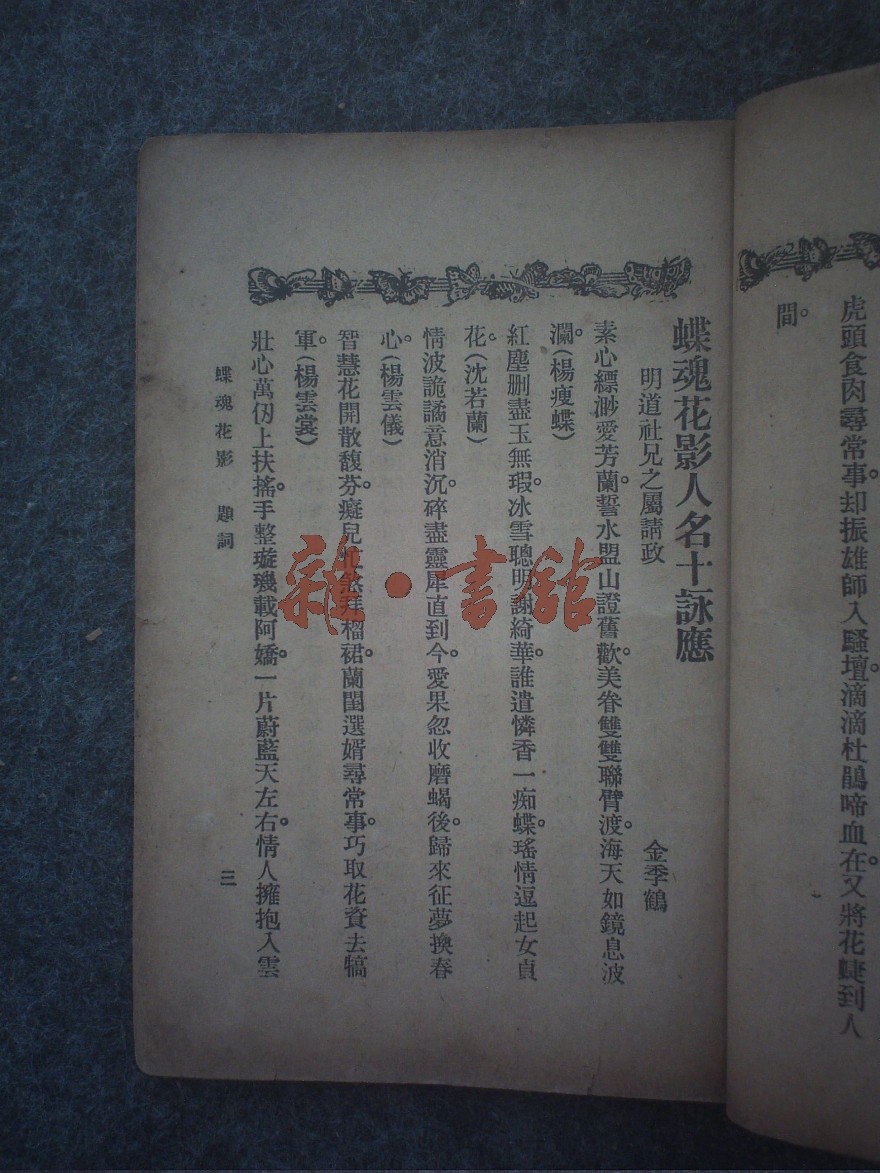 虎頭食肉尋常事。却振雄師入騷壇。滴滴杜鵑啼血在。又將花
到人
間。
蝶魂花影人名十詠應
明道社兄之屬請政
金季鶴
素心縹渺愛芳蘭。誓水盟山證舊歡。美眷雙雙聯臂渡。海天如鏡息波
瀾。(楊瘦蝶)
紅塵删盡玉無瑕。冰雪聰明謝綺華。誰遣憐香一痴蝶。瑤情逗起女貞
花。(沈若蘭)
情波詭譎意消沉。碎盡靈犀直到今。愛果忽收磨蝎後。歸來征夢換春
心。(楊雲儀)
智慧花開散馥芬。癡兒忙煞拜榴裙。蘭閨選婿尋常事。巧取花資去犒
軍。(楊雲裳)
壯心萬仞上扶搖。手整璇璣載阿嬌。一片蔚藍天左右。情人擁抱入雲
蝶魂花影 題詞
三
雜·書館